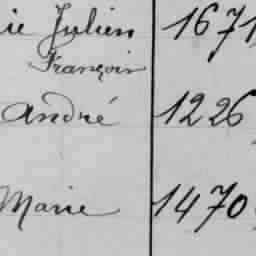 ie Julien 1671
François
André 1226
Marie 1470